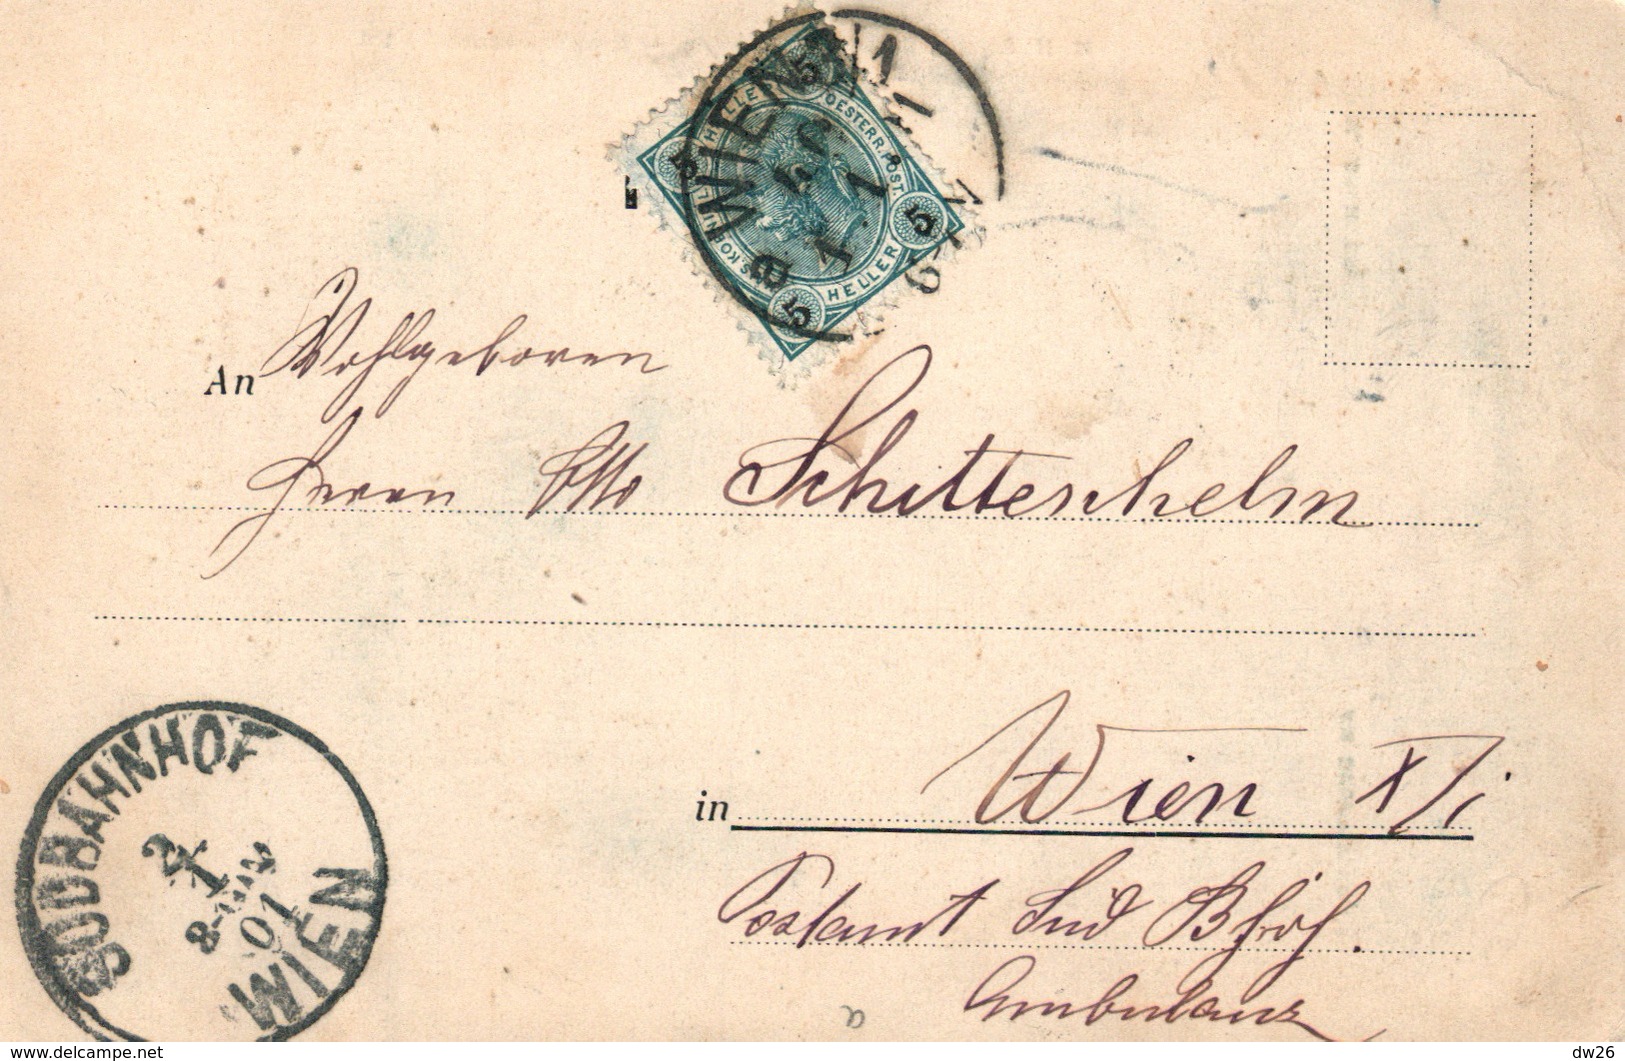 WIEN
5 HELLER
OESTERR. POST.
5
5
HELLER
5
An Wohlgeboren
Herrn Otto Schitteshelm
in Wien X/1
Postamt Süd Bhof.
Ambulanz
SÜDBAHNHOF
2/1
01
WIEN
a
www.delcampe.net
dw26